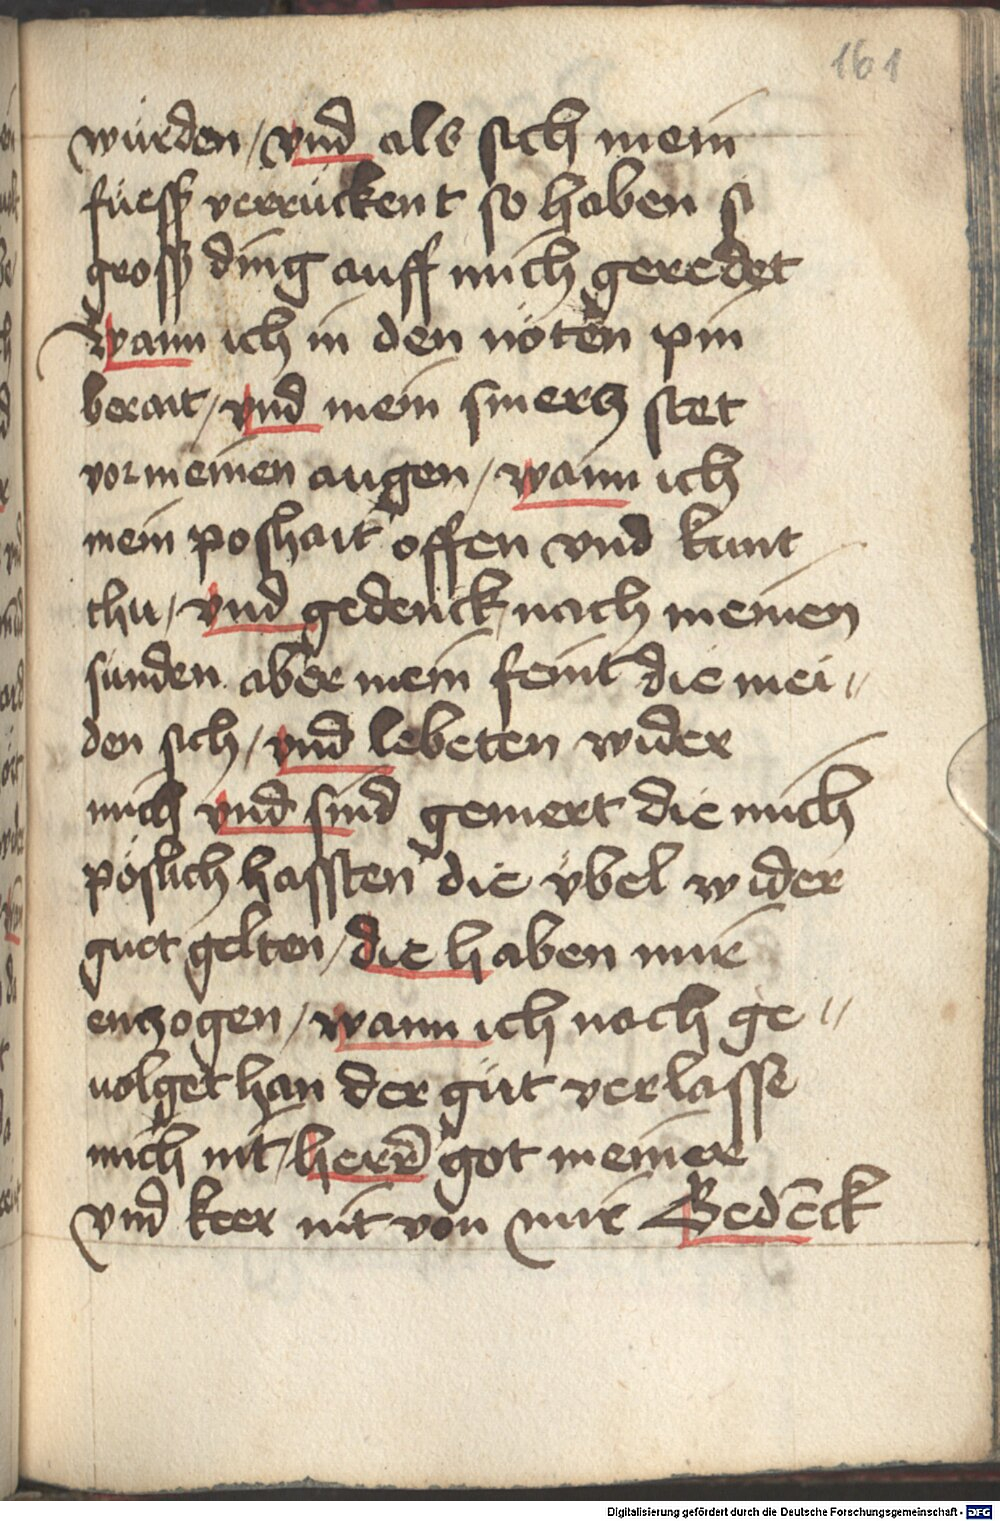 161
würden / vnd als sich mein
füessz verruckent so haben si
grossz ding auff mich geredet
wann ich in den nöten pin
berait / vnd mein smercz stet
vor meinen augen / wann ich
mein poshait offen vnd kunt
thu / vnd gedenck nach meinen
sunden aber mein feint die mei〃
den sich / vnd lebeten wider
mich vnd sind gemert die mich
pöslich hassten die vbel wider
guet gelten / die haben mir
enczogen / wann ich nach ge〃
uolget han der güt verlasse
mich nit / herr̄ got meiner
vnd keer nit von mir Gedēck
Digitalisierung gefördert durch die Deutsche Forschungsgemeinschaft - DFG